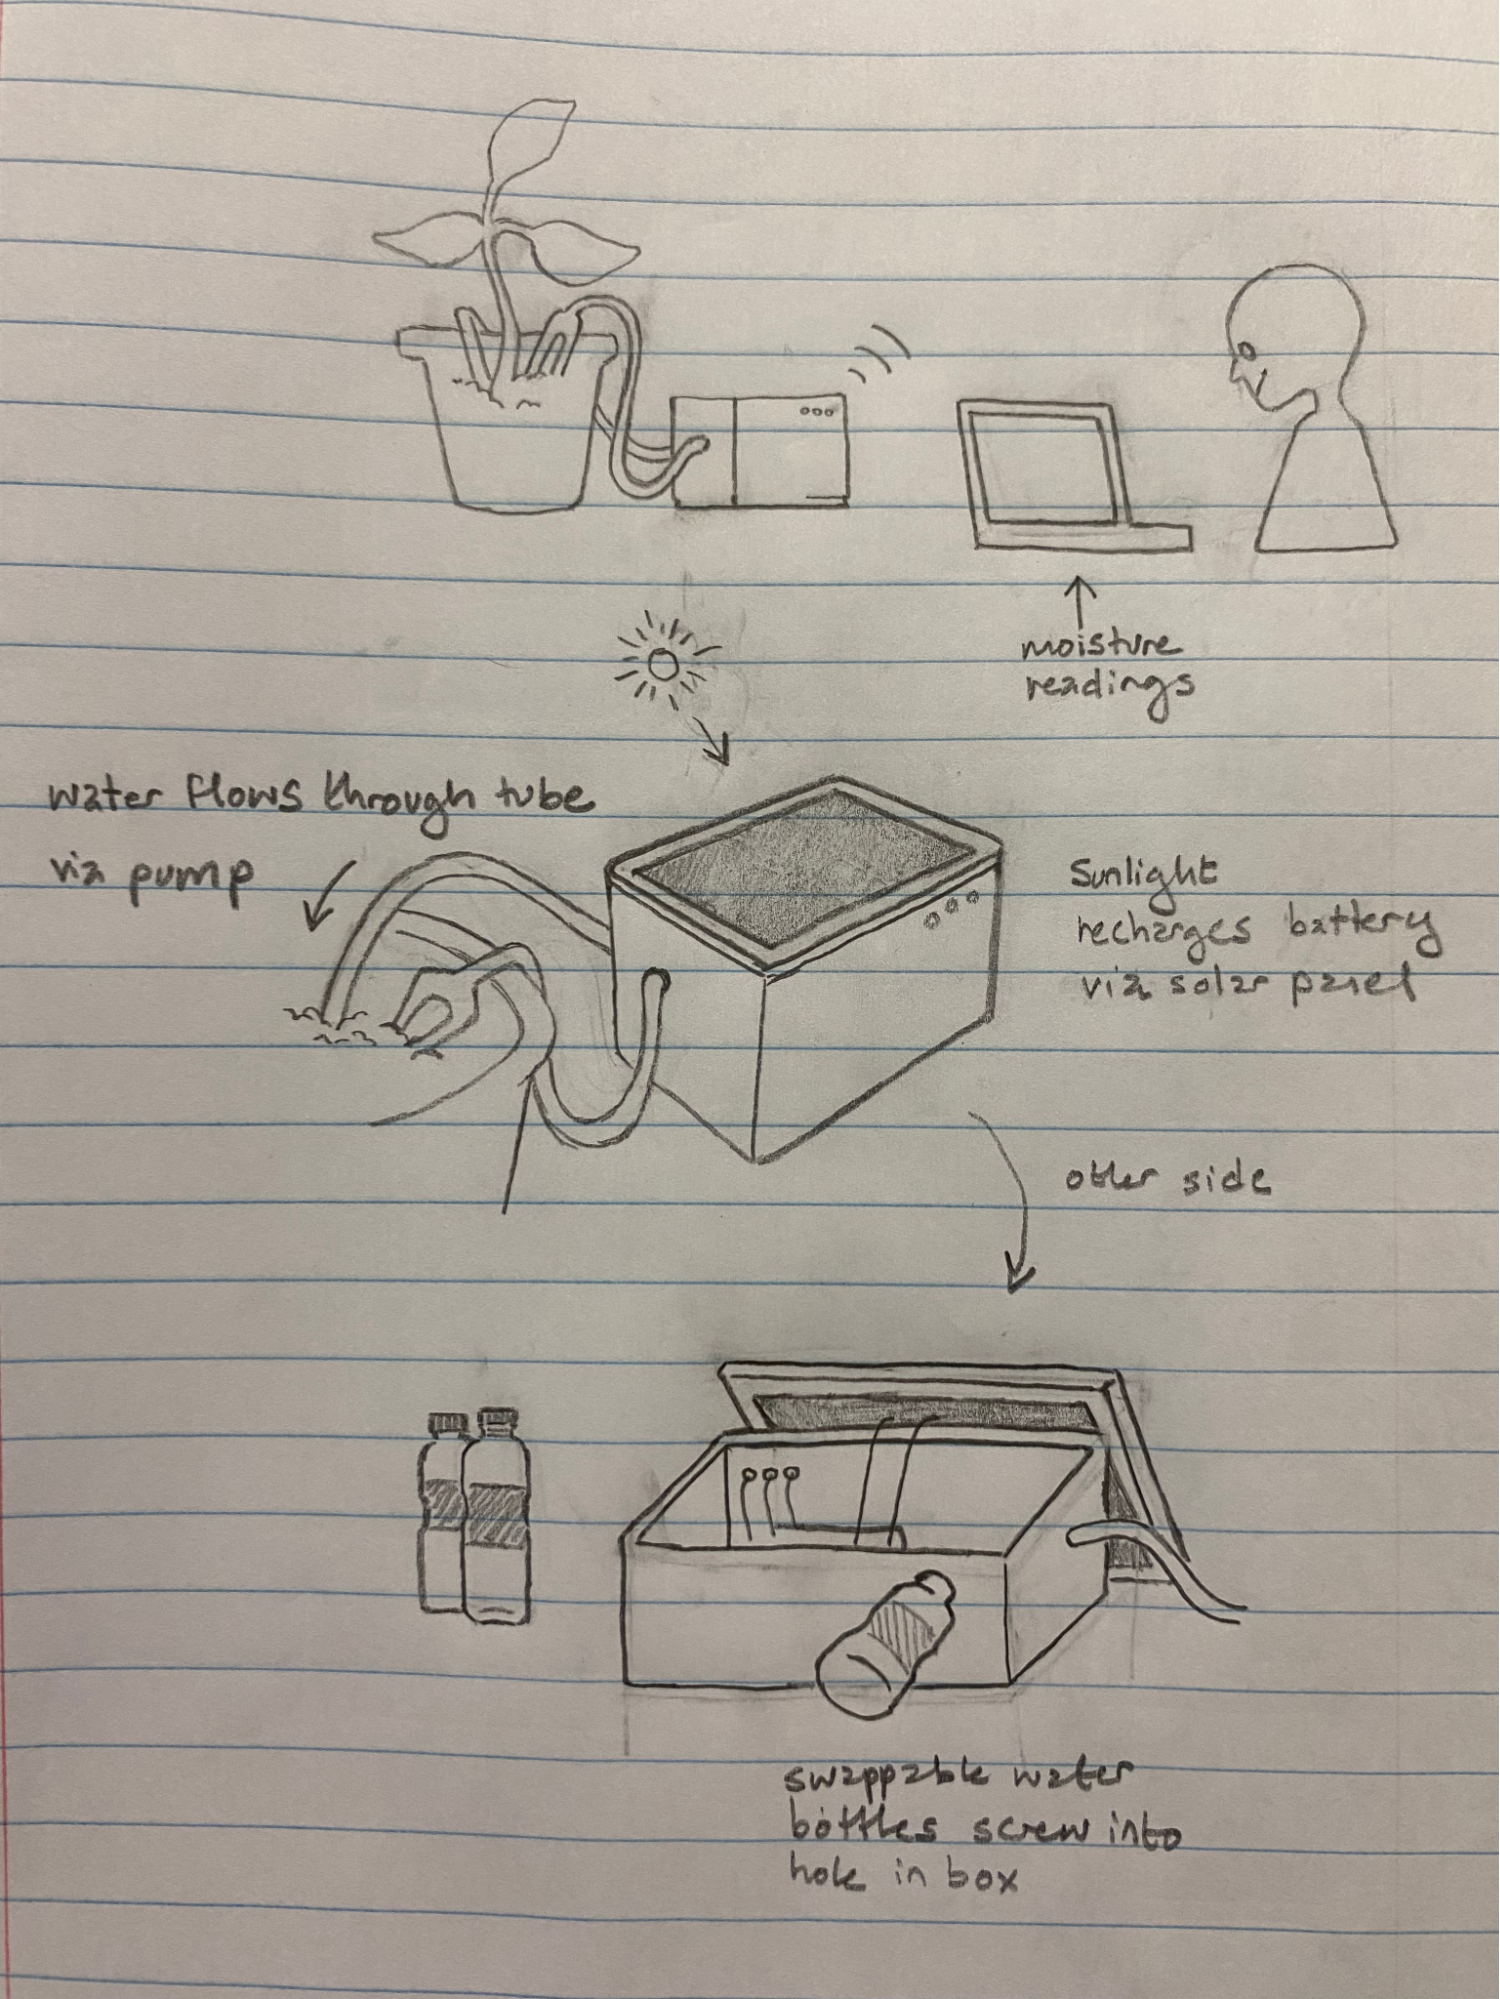 moisture
readings
water flows through tube
via pump
Sunlight
recharges battery
via solar panel
other side
swappable water
bottles screw into
hole in box